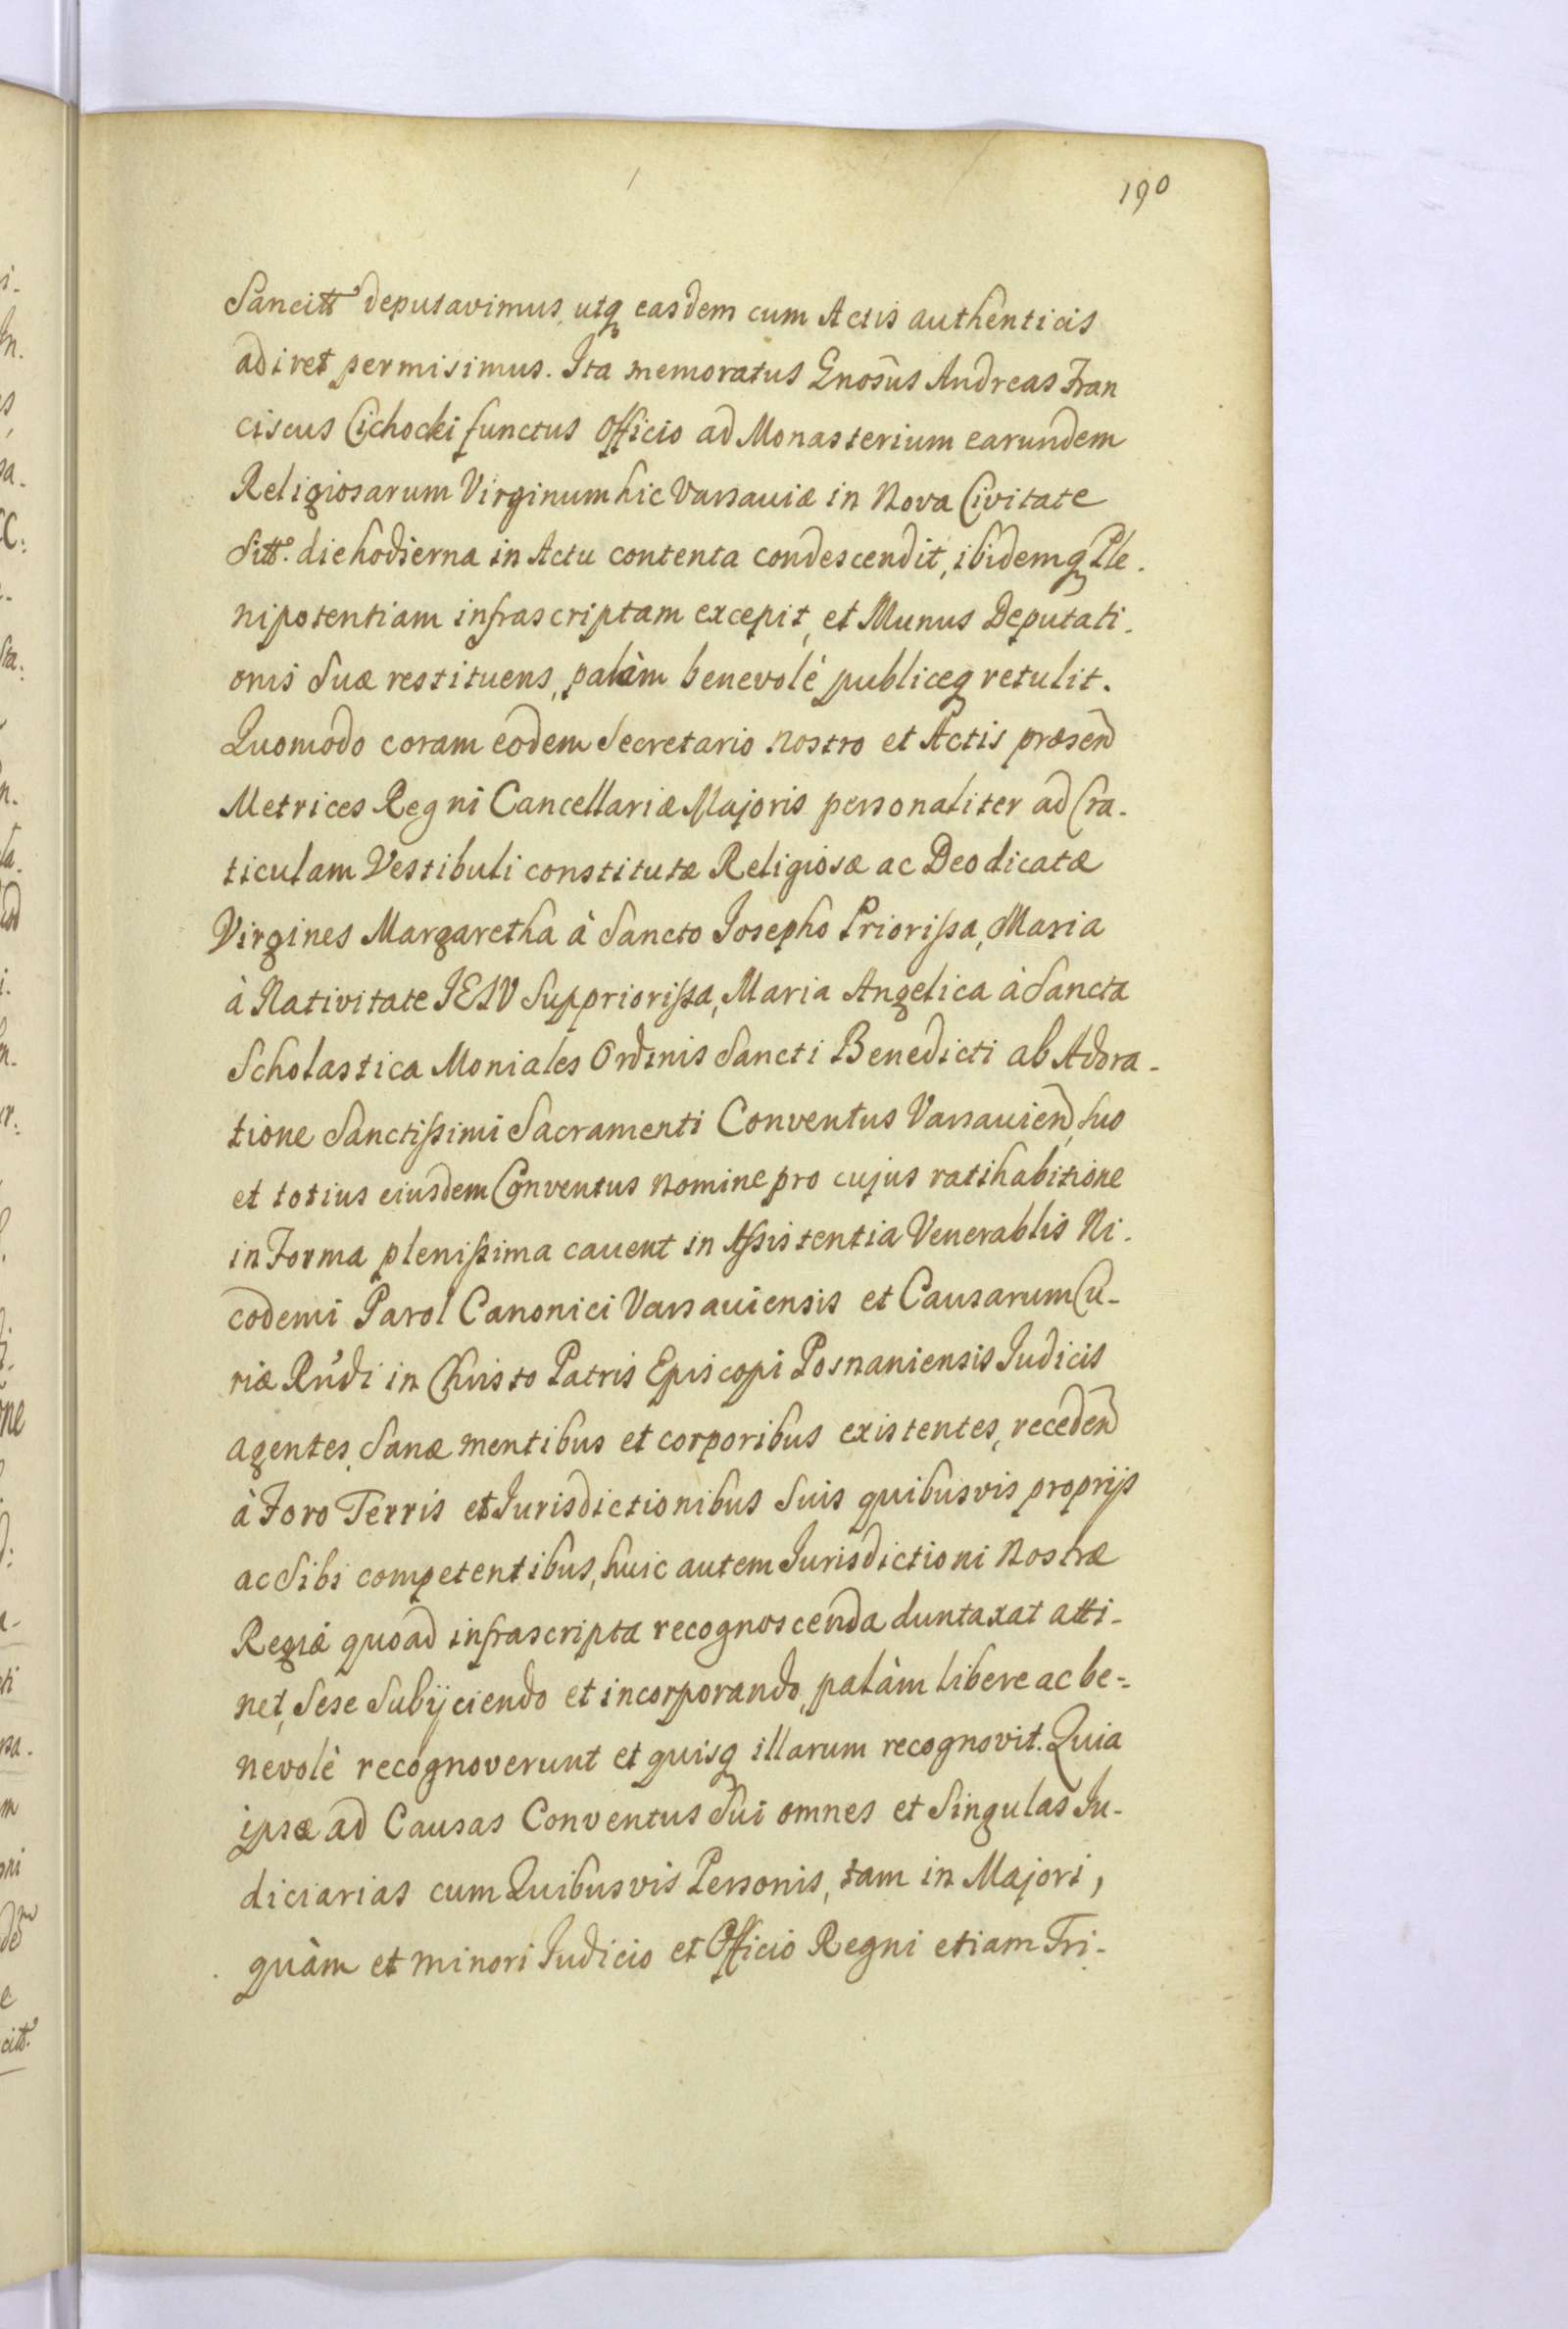 190
Sancitt' deputavimus, utq easdem cum Actis authenticis
adiret permisimus. Ita memoratus Gnosus Andreas Fran
ciscus Cichocki functus Officio ad Monasterium earundem
Religiosarum Virginum hic Varsaviæ in Nova Civitate
Sitt. die hodierna in Actu contenta condescendit, ibidemq Ple.
nipotentiam infrascriptam excepit, et Munus Deputati.
onis Suæ restituens, palàm benevolè publiceq retulit.
Quomodo coram eodem Secretario nostro et Actis præsend
Metrices Regni Cancellariæ Majoris personaliter ad Cra-
ticulam Vestibuli constitutæ Religiosæ ac Deo dicatæ
Virgines Margaretha à Sancto Josepho Priorissa, Maria
à Nativitate JESV Suppriorissa, Maria Angelica à Sancta
Scholastica Moniales Ordinis Sancti Benedicti ab Adora-
tione Sanctissimi Sacramenti Conventus Varsaviend, suo
et totius eiusdem Conventus nomine pro cujus ratihabitione
in Forma plenissima cavent in Assistentia Venerablis Ni.
codemi Parol Canonici Varsaviensis et Causarum Cu-
riæ Rndi in Christo Patris Episcopi Posnaniensis Judicis
agentes, Sanæ mentibus et corporibus existentes, recedend
à Foro Terris et Jurisdictionibus Suis quibusvis proprijs
ac Sibi competentibus, huic autem Jurisdictioni Nostræ
Regiæ quoad infrascripta recognoscenda duntaxat atti-
net, Sese Subijciendo et incorporando, palàm libere ac be-
nevolè recognoverunt et quisq illarum recognovit. Quia
ipsæ ad Causas Conventus Sui omnes et Singulas Ju-
diciarias cum Quibusvis Personis, tam in Majori,
quàm et minori Judicio et Officio Regni etiam Tri-